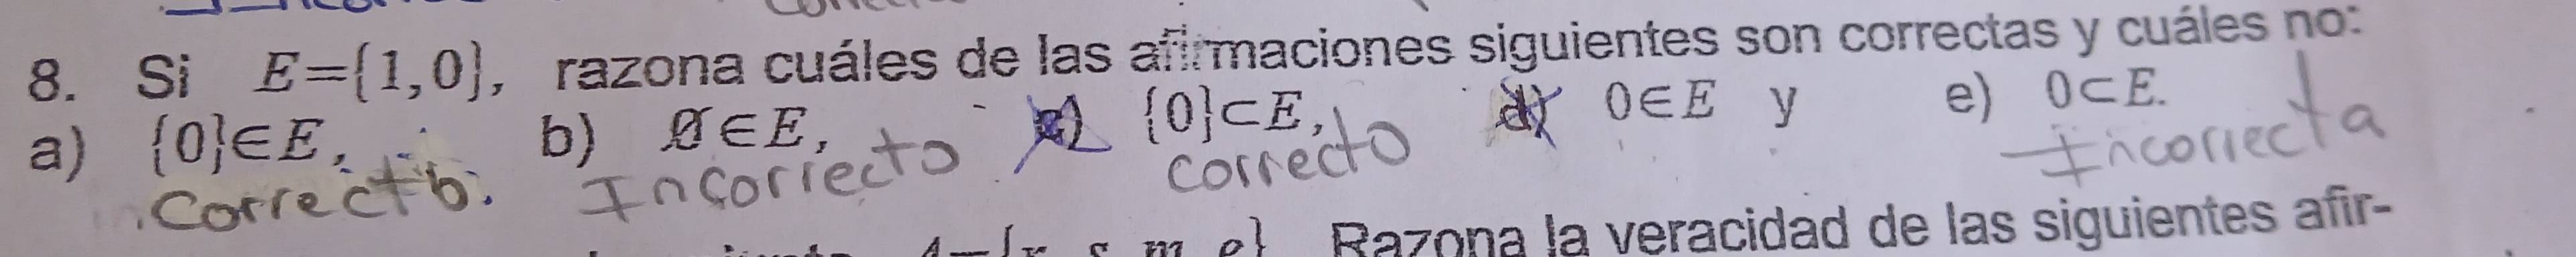 8. Si E={1,0}, razona cuáles de las afirmaciones siguientes son correctas y cuáles no:
a) {0}∈E, b) Ø∈E, c) {0}⊂E, d) 0∈E y e) 0⊂E.
Correcto. Incorrecto correcto Incorrecta
Razona la veracidad de las siguientes afir-